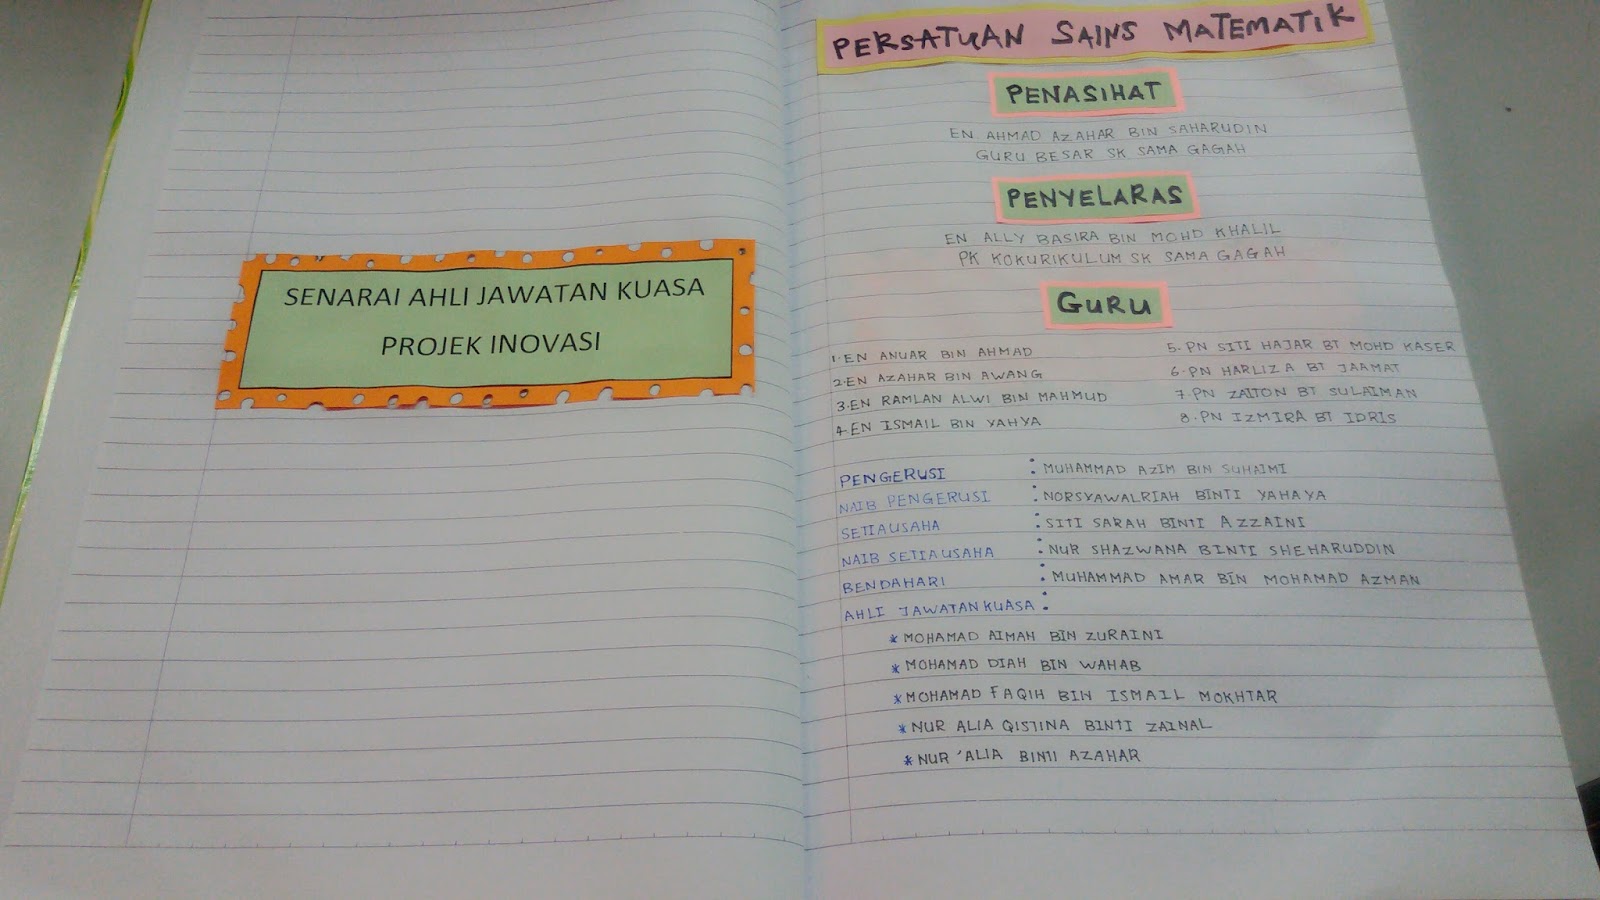 SENARAI AHLI JAWATAN KUASA
PROJEK INOVASI
PERSATUAN SAINS MATEMATIK
PENASIHAT
EN AHMAD AZAHAR BIN SAHARUDIN
GURU BESAR SK SAMA GAGAH
PENYELARAS
EN ALLY BASIRA BIN MOHD KHALIL
PK KOKURIKULUM SK SAMA GAGAH
GURU
1. EN ANUAR BIN AHMAD
2. EN AZAHAR BIN AWANG
3. EN RAMLAN ALWI BIN MAHMUD
4. EN ISMAIL BIN YAHYA
5. PN SITI HAJAR BT MOHD KASER
6. PN HARLIZA BT JAAMAT
7. PN ZAITON BT SULAIMAN
8. PN IZMIRA BT IDRIS
PENGERUSI : MUHAMMAD AZIM BIN SUHAIMI
NAIB PENGERUSI : NORSYAWALRIAH BINTI YAHAYA
SETIAUSAHA : SITI SARAH BINTI AZZAINI
NAIB SETIAUSAHA : NUR SHAZWANA BINTI SHEHARUDDIN
BENDAHARI : MUHAMMAD AMAR BIN MOHAMAD AZMAN
AHLI JAWATANKUASA :
* MOHAMAD AIMAN BIN ZURAINI
* MOHAMAD DIAH BIN WAHAB
* MOHAMAD FAQIH BIN ISMAIL MOKHTAR
* NUR ALIA QISTINA BINTI ZAINAL
* NUR 'ALIA BINTI AZAHAR